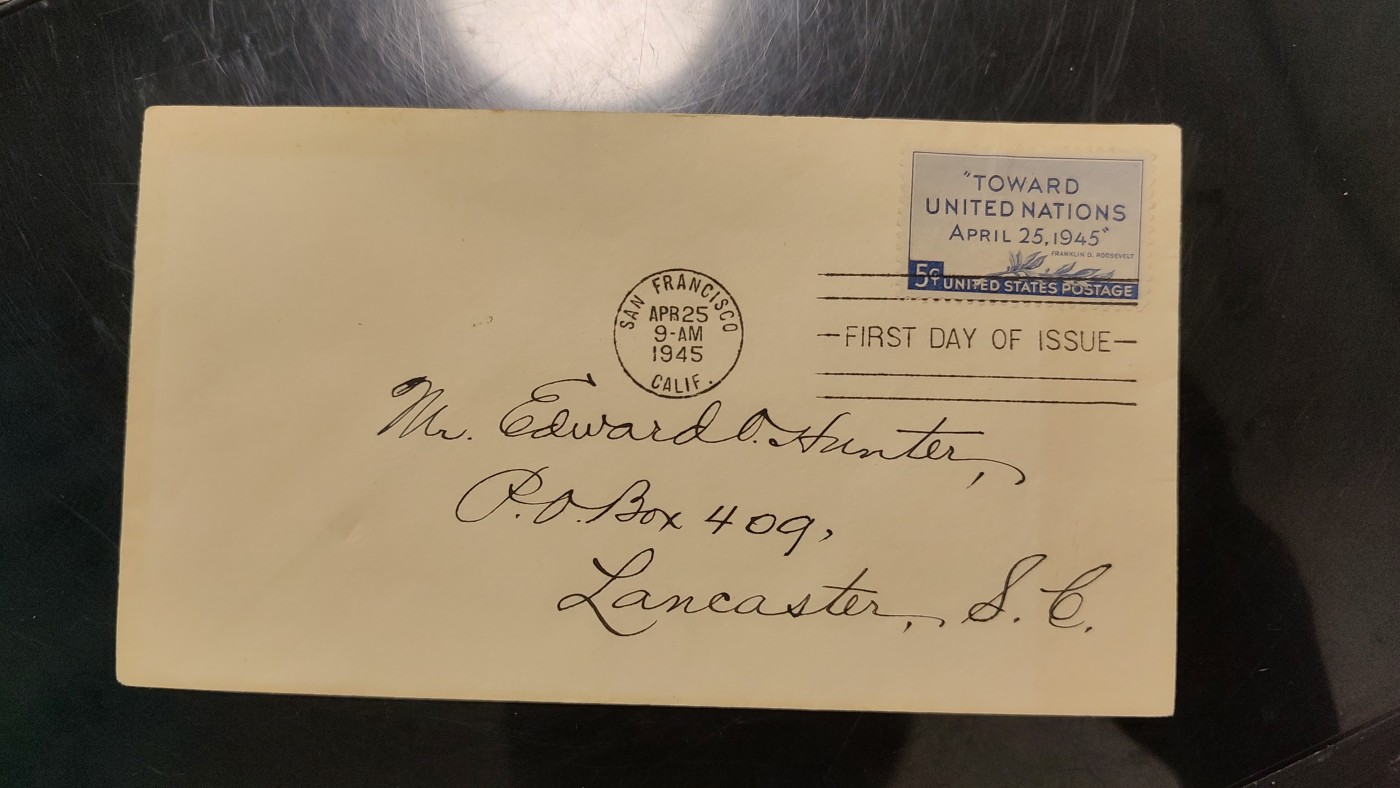 "TOWARD
UNITED NATIONS
APRIL 25, 1945"
FRANKLIN D. ROOSEVELT
5¢ UNITED STATES POSTAGE
SAN FRANCISCO
APR 25
9-AM
1945
CALIF.
FIRST DAY OF ISSUE
Mr. Edward O. Hunter,
P.O. Box 409,
Lancaster, S. C.